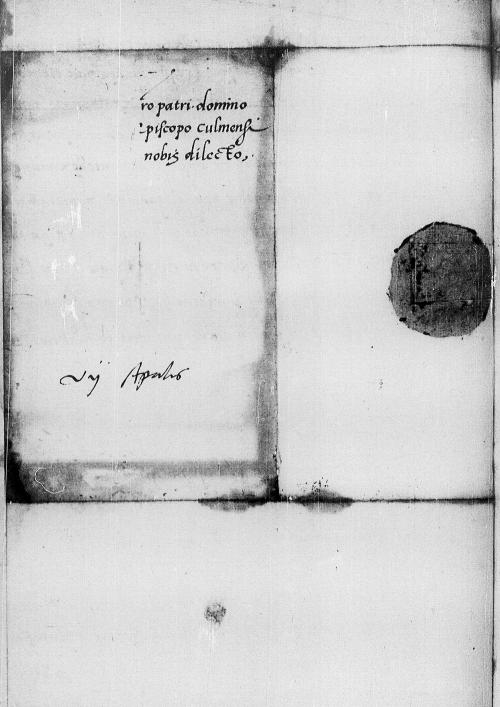 ro patri domino
piscopo culmensi
nobis dilecto,
vij Aprilis